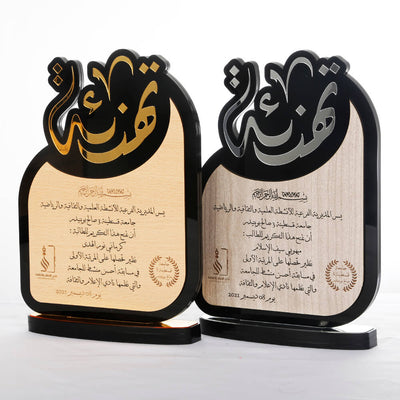 تهنئة
بسم الله الرحمن الرحيم
يسر المديرية الفرعية للأنشطة العلمية والثقافية والرياضية
جامعة قسنطينة 3 صالح بوبنيدر
أن تمنح هذا التكريم للطالبة:
كرماني نور الهدى
نظير تحصلها على المرتبة الأولى
في مسابقة أحسن منشط للجامعة
والتي نظمها نادي الإعلام والثقافة
يوم 08 ديسمبر 2021
تهنئة
بسم الله الرحمن الرحيم
يسر المديرية الفرعية للأنشطة العلمية والثقافية والرياضية
جامعة قسنطينة 3 صالح بوبنيدر
أن تمنح هذا التكريم للطالب:
سيف الإسلام
نظير تحصله على المرتبة الأولى
في مسابقة أحسن منشط للجامعة
والتي نظمها نادي الإعلام والثقافة
يوم 08 ديسمبر 2021